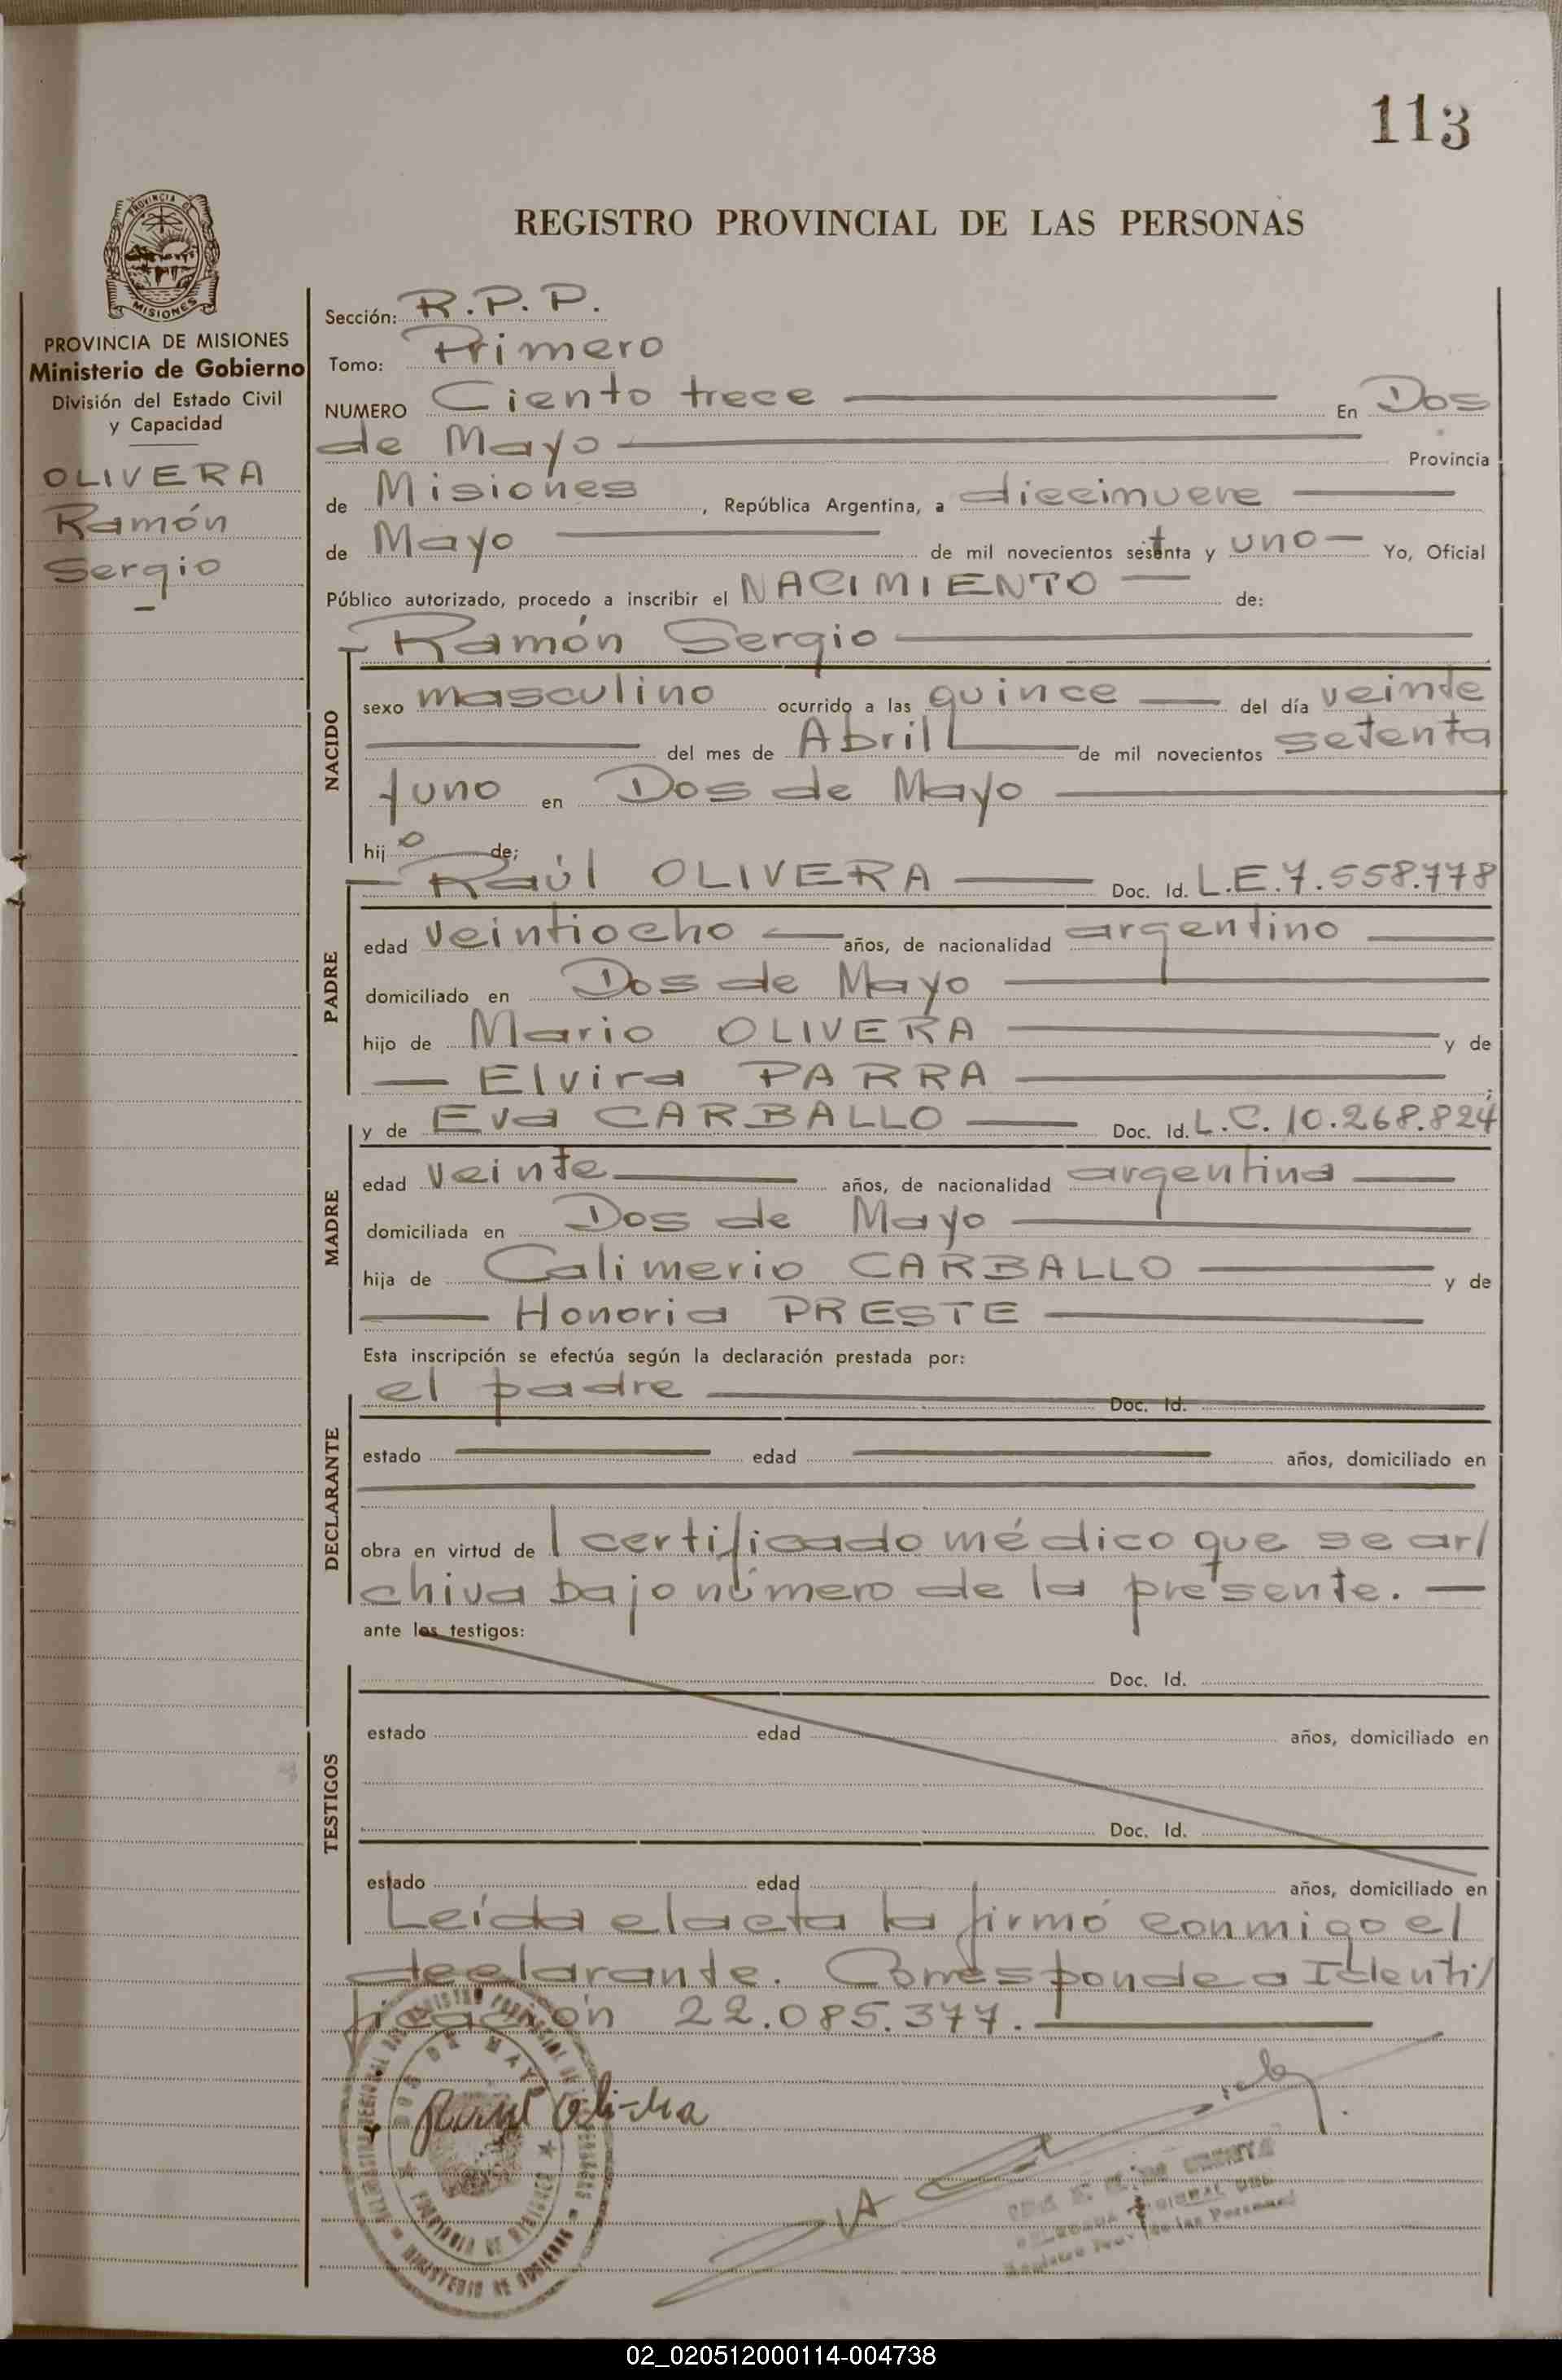 113
REGISTRO PROVINCIAL DE LAS PERSONAS
PROVINCIA DE MISIONES
PROVINCIA DE MISIONES
Ministerio de Gobierno
División del Estado Civil
y Capacidad
OLIVERA
Ramón
Sergio
Sección: R.P.P.
Tomo: Primero
NUMERO Ciento trece En Dos
de Mayo Provincia
de Misiones, República Argentina, a diecinueve
de Mayo de mil novecientos setenta y uno Yo, Oficial
Público autorizado, procedo a inscribir el NACIMIENTO de:
Ramón Sergio
NACIDO
sexo masculino ocurrido a las quince del día veinte
del mes de Abril de mil novecientos setenta
y uno en Dos de Mayo
hijo de;
PADRE
Raúl OLIVERA Doc. Id. L.E. 7.558.778
edad veintiocho años, de nacionalidad argentino
domiciliado en Dos de Mayo
hijo de Mario OLIVERA y de
Elvira PARRA ;
MADRE
y de Eva CARBALLO Doc. Id. L.C. 10.268.824
edad veinte años, de nacionalidad argentina
domiciliada en Dos de Mayo
hija de Calimerio CARBALLO y de
Honoria PRESTE
Esta inscripción se efectúa según la declaración prestada por:
DECLARANTE
el padre Doc. Id.
estado edad años, domiciliado en
obra en virtud de l certificado médico que se ar/
chiva bajo número de la presente.
ante los testigos:
TESTIGOS
Doc. Id.
estado edad años, domiciliado en
Doc. Id.
estado edad años, domiciliado en
Leída el acta la firmó conmigo el
declarante. Corresponde a Identi/
ficación 22.085.377.
DOS DE MAYO
PROVINCIA DE MISIONES
MINISTERIO DE GOBIERNO
02_020512000114-004738